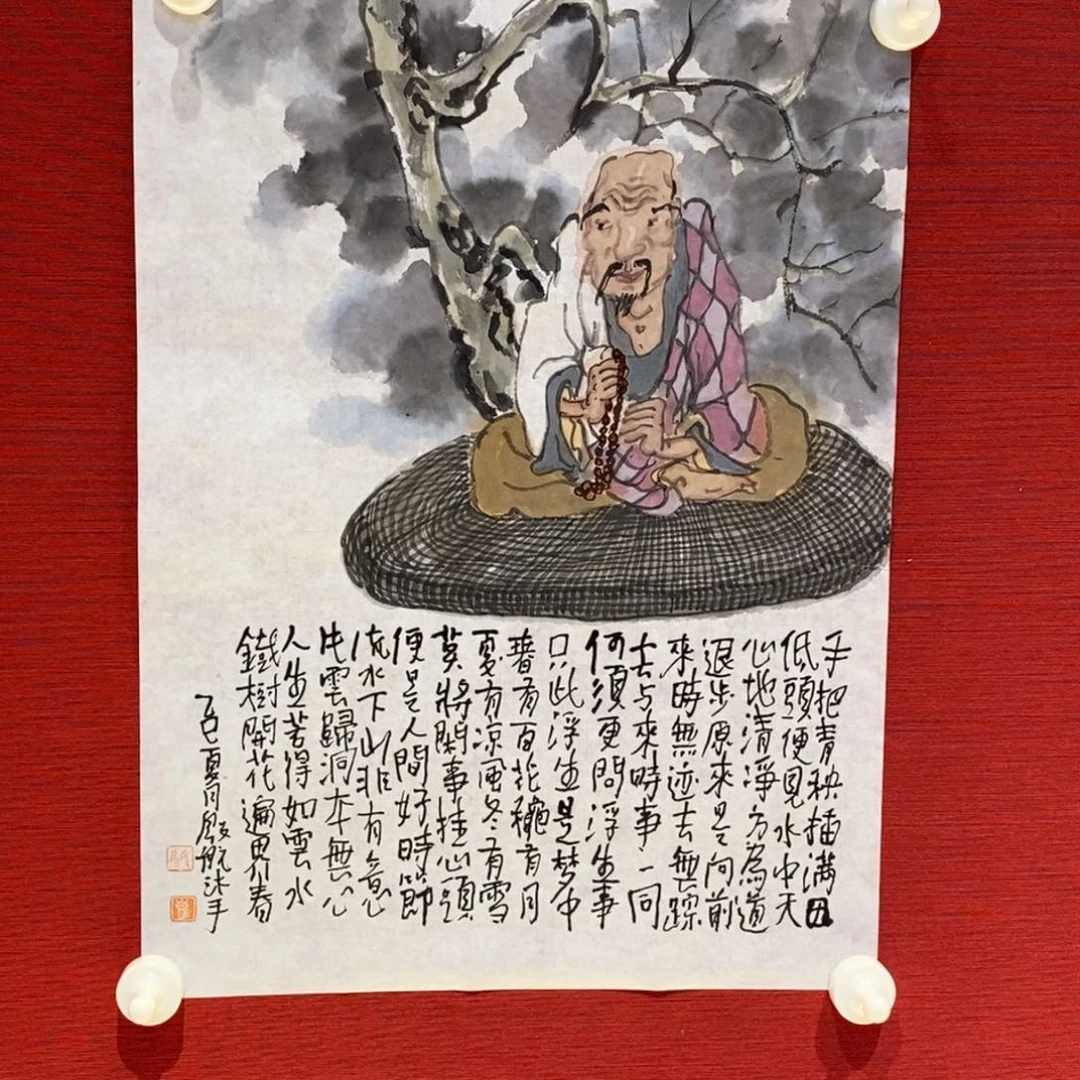 手把青秧插滿田
低頭便見水中天
心地清淨方為道
退步原來是向前
來時無迹去無踪
去与來時事一同
何須更問浮生事
只此浮生是梦中
春有百花穐有月
夏有凉風冬有雪
莫將閑事挂心頭
便是人間好時節
流水下山非有意
片雲歸洞本無心
人生若得如雲水
鐵樹開花遍界春
乙巳夏月
航沐手